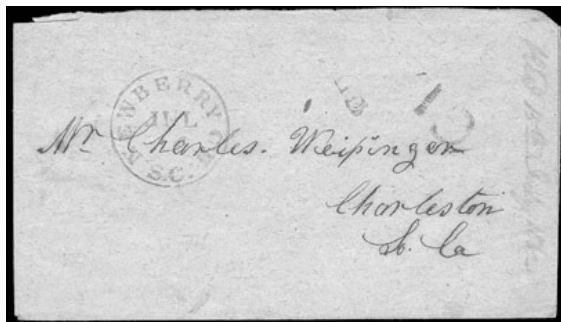 NEWBERRY C.H.
JUL
S.C.
10
Mr Charles. Weisinger
Charleston
So. Ca